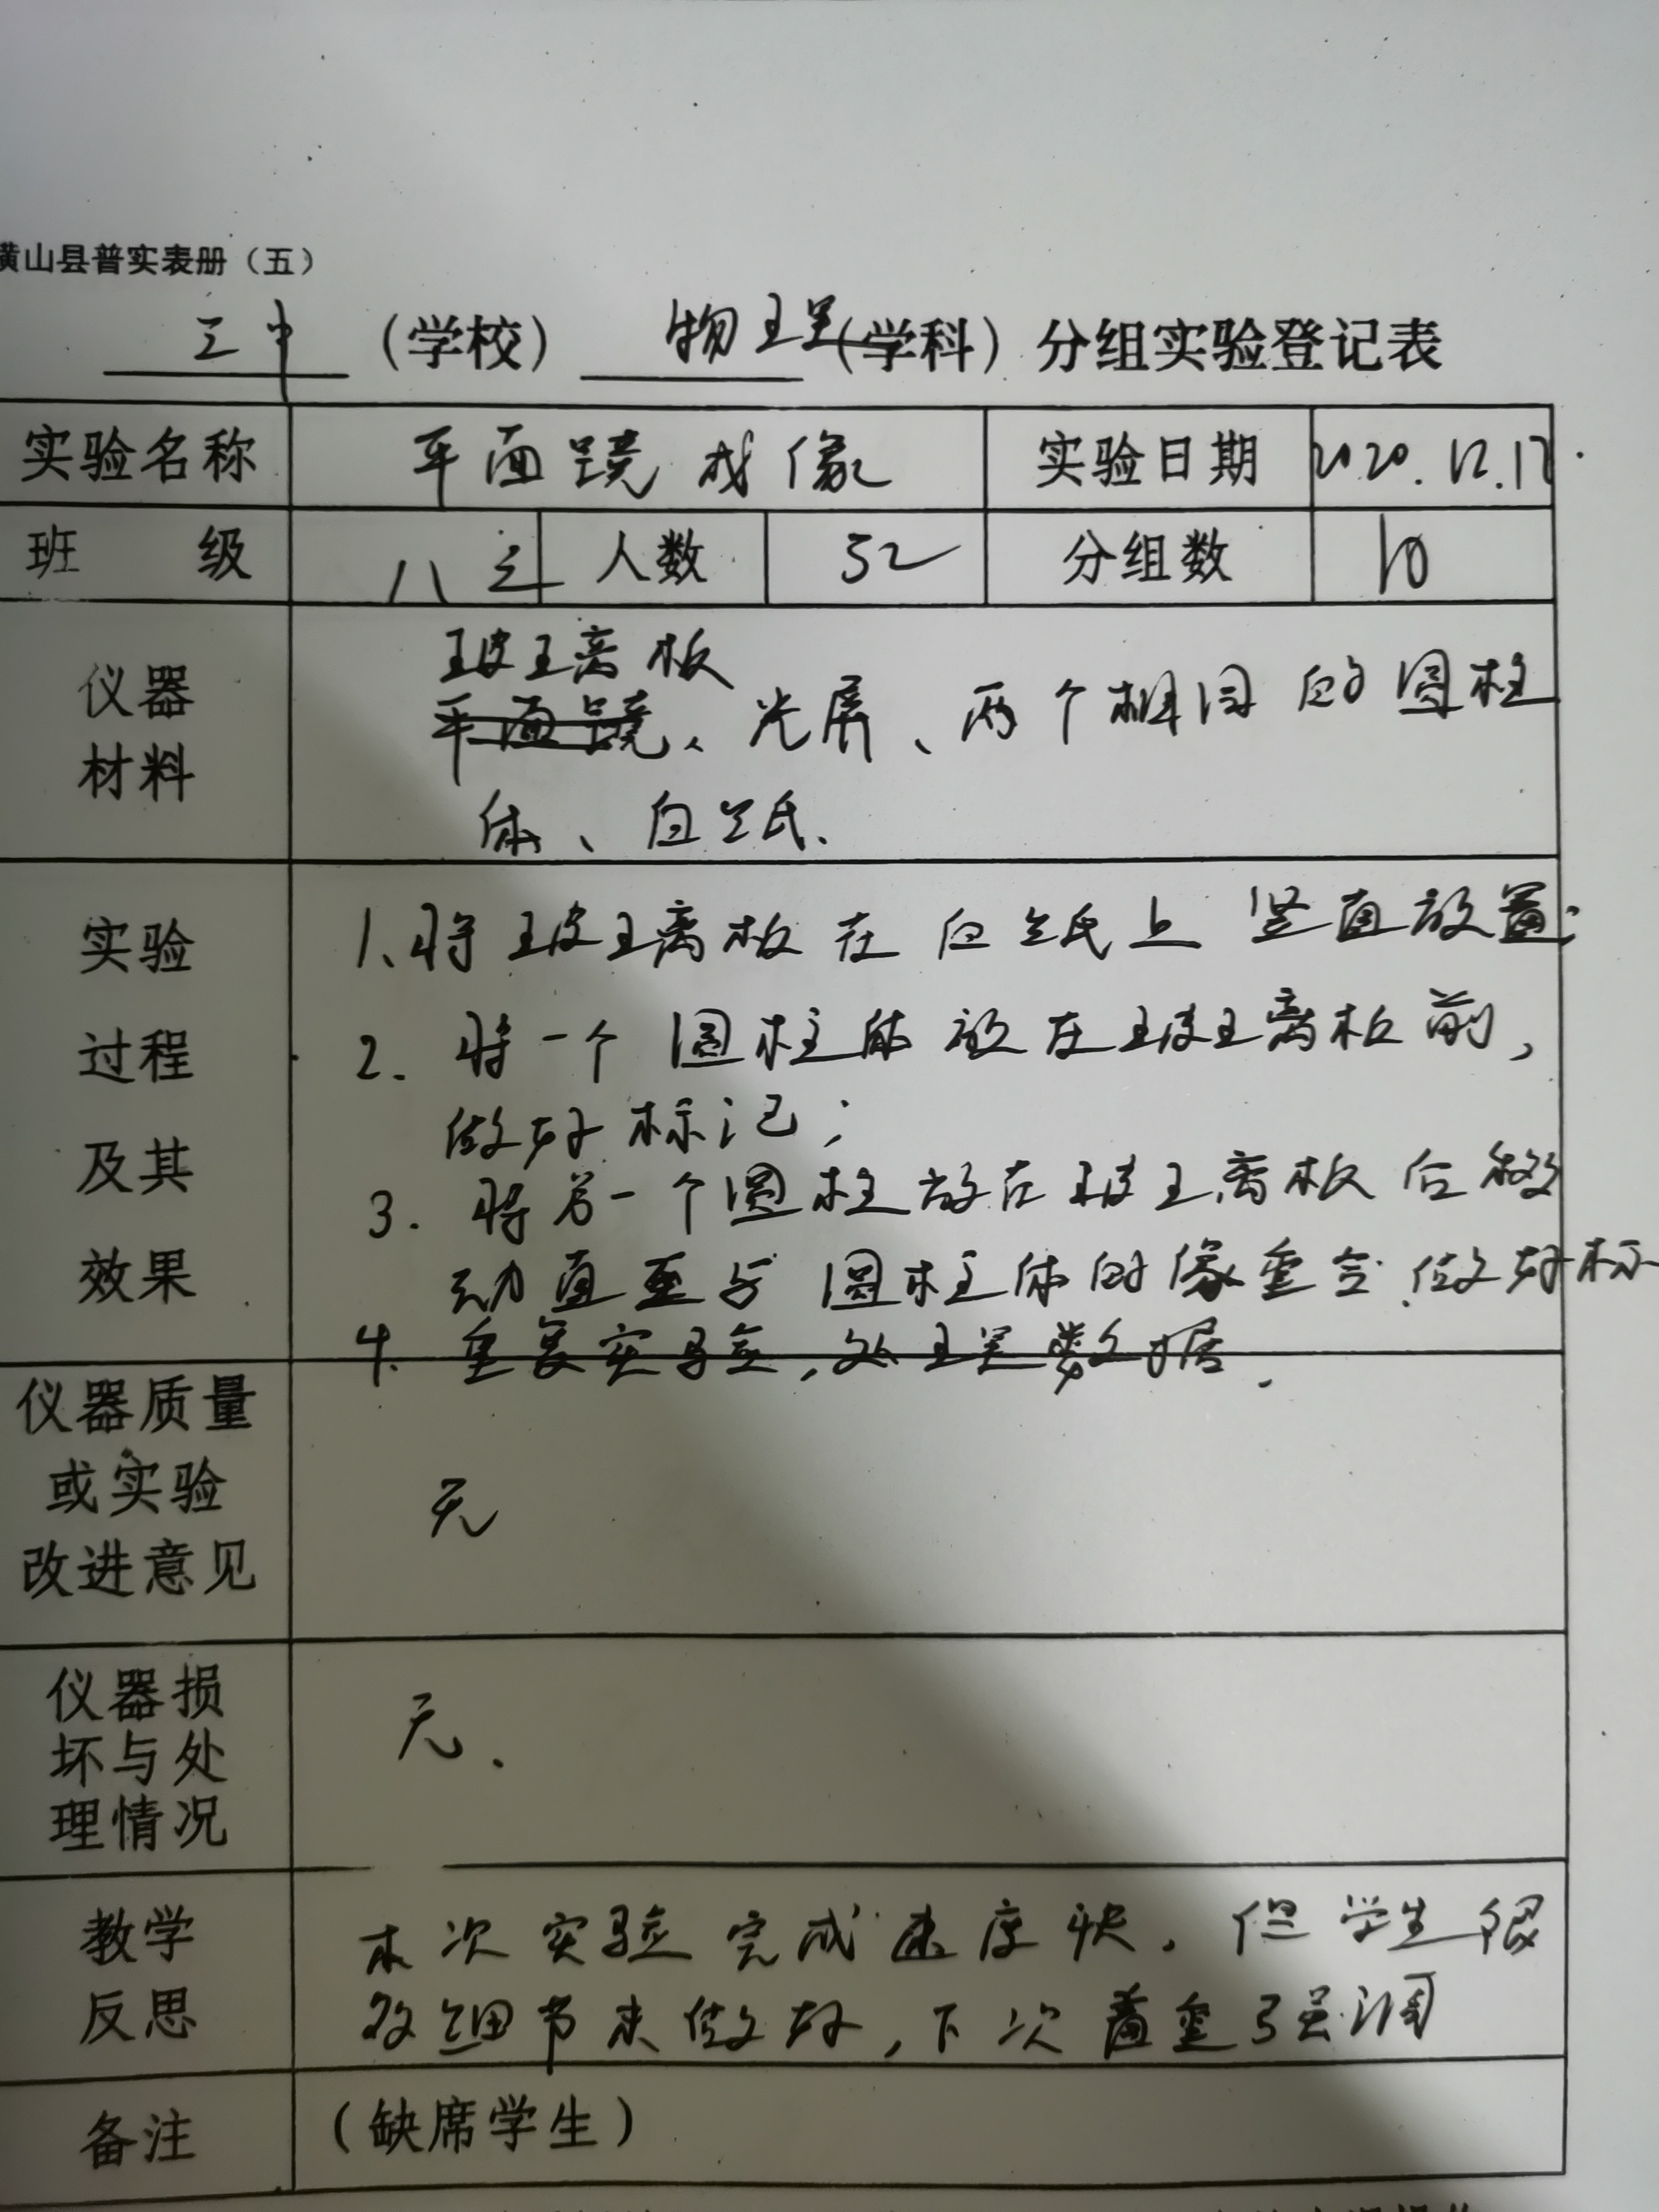 横山县普实表册（五）
三中（学校）物理（学科）分组实验登记表
实验名称 平面镜成像 实验日期 2020.12.17
班级 八三 人数 52 分组数 10
玻璃板
仪器 平面镜、光屏、两个相同的圆柱
材料 体、白纸.
实验 1、将玻璃板在白纸上竖直放置;
过程 2. 将一个圆柱体放在玻璃板前,
做好标记;
及其 3. 将另一个圆柱放在玻璃板后移
效果 动直至与圆柱体的像重合.做好标
4. 重复实验,处理数据.
仪器质量
或实验 无
改进意见
仪器损
坏与处 无.
理情况
教学 本次实验完成速度快,但学生很
反思 多细节未做好,下次着重强调
备注 （缺席学生）